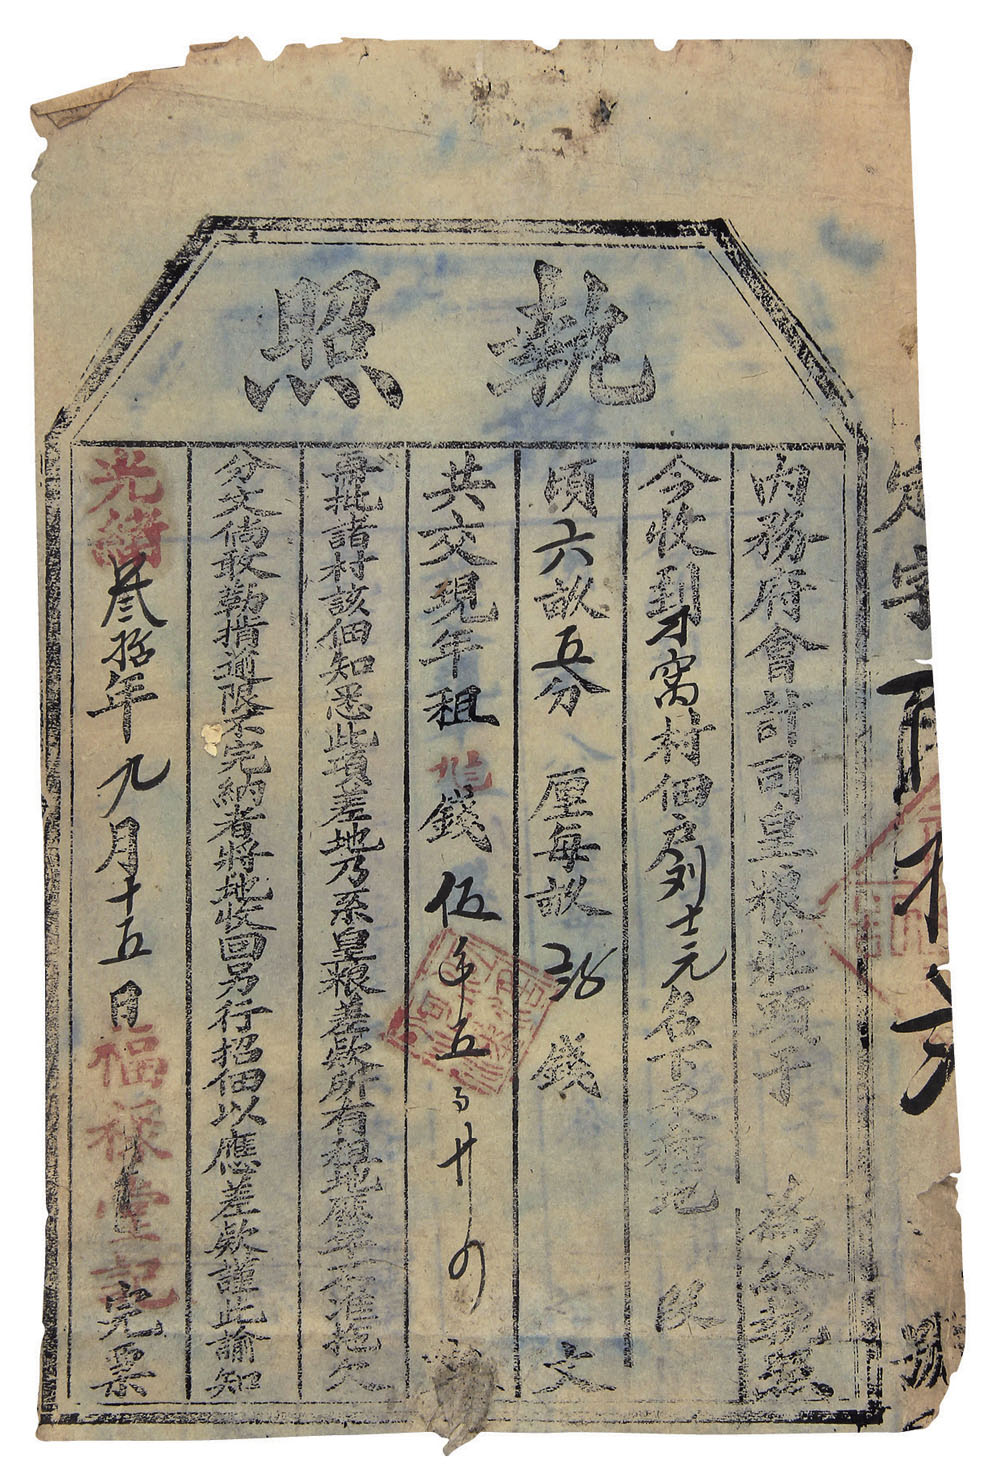 執照
內務府會計司皇粮莊頭于 為給執照
今收到才窩村佃户列士元名下承種地 段
頃六畝五分 厘每畝 錢 文
共交現年租錢伍千五百廿
再批諸村該佃知悉此項差地乃系皇粮差欵所有租地應年不准拖欠
分文倘敢勒措逾限不完納者將地收回另行招佃以應差欵謹此諭知
光緒叁拾年九月十五日福祿堂記完票
字 號